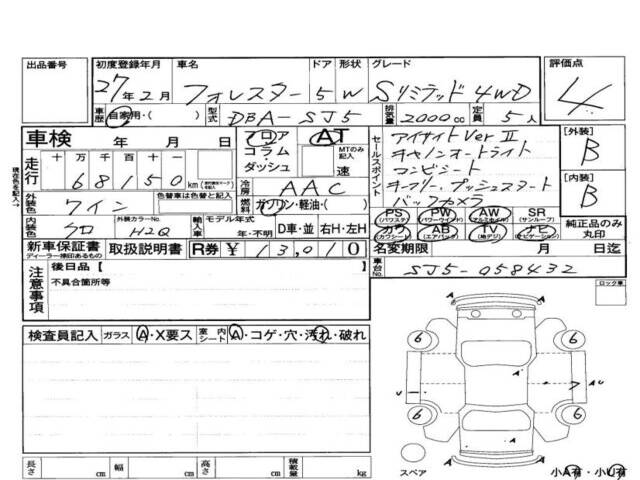 出品番号
初度登録年月 車名 ドア 形状 グレード 評価点
27年2月 フォレスター 5 W Sリミテッド4WD 4
車歴 自家用・( ) 型式 DBA-SJ5 排気量 2000cc 定員 5人
車検 年 月 日 フロア AT
コラム・ダッシュ MTのみ記入 速
走行 十万千百十一
68150km
冷房 AAC
外装色 ワイン 色替車は色替と記入 燃料 ガソリン・軽油・( )
内装色 クロ 外装カラーNo. H2Q 輸入車 モデル年式 年・不明 D車・並 右H・左H
セールスポイント
アイサイトVer II
キセノンオートライト
コンビシート
キーフリープッシュスタート
バックカメラ
[外装] B
[内装] B
PS (パワステ) PW (パワーウインド) AW (アルミホイル) SR (サンルーフ)
カワ (カワシート) AB (エアバック) TV (地デジ) ナビ (ナビゲーション)
純正品のみ丸印
新車保証書 ディーラー捺印あるもの 取扱説明書 R券 ¥13,010
名変期限 月 日迄
車台No. SJ5-058432
注意事項 後日品【 】
不具合箇所等
ロック車
検査員記入 ガラス A・X要ス 室内シート A・コゲ・穴・汚れ・破れ
6 6
6 6
A A
U A AU
A
A
スペア 小A有・小U有
長さ cm 幅 cm 高さ cm 積載量 kg
現在色を記入→